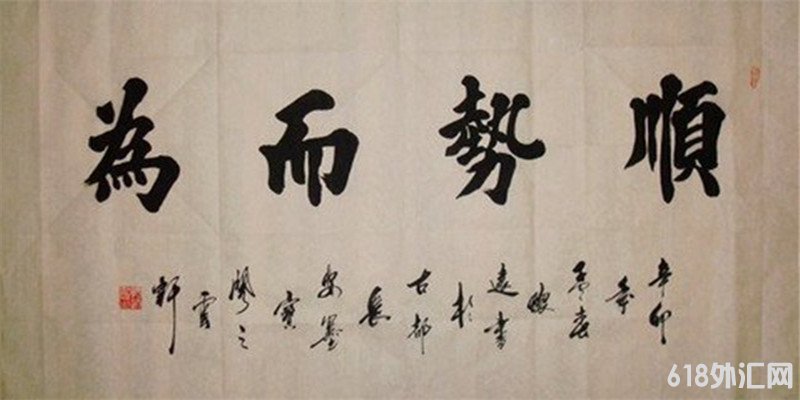 順勢而為
辛卯年孟春遠書於古都長安墨寶閣之雲軒
618外汇网